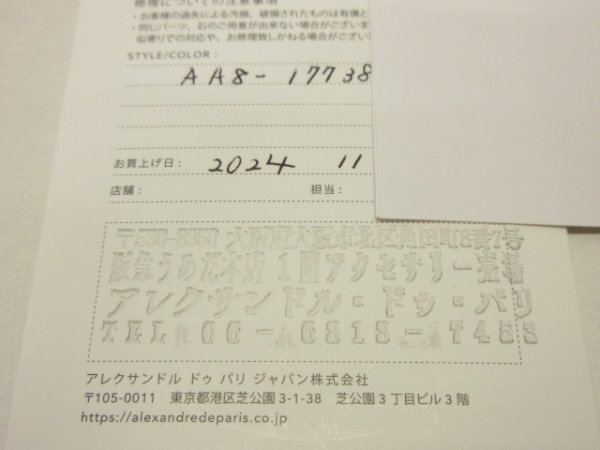 修理についての注意事項
・お客様の過失による汚損、破損されたものは有償と
・同じパーツ、石のご用意が出来ない場合がございま
似寄りでの対応や、お修理致しかねる場合がござい
STYLE/COLOR:
AA8-17738
お買上げ日： 2024 11
店舗： 担当：
〒530-8350 大阪府大阪市北区角田町8番7号
阪急うめだ本店 1階アクセサリー売場
アレクサンドル・ドゥ・パリ
TEL 06-6313-7453
アレクサンドル ドゥ パリ ジャパン株式会社
〒105-0011 東京都港区芝公園3-1-38 芝公園3丁目ビル3階
https://alexandredeparis.co.jp